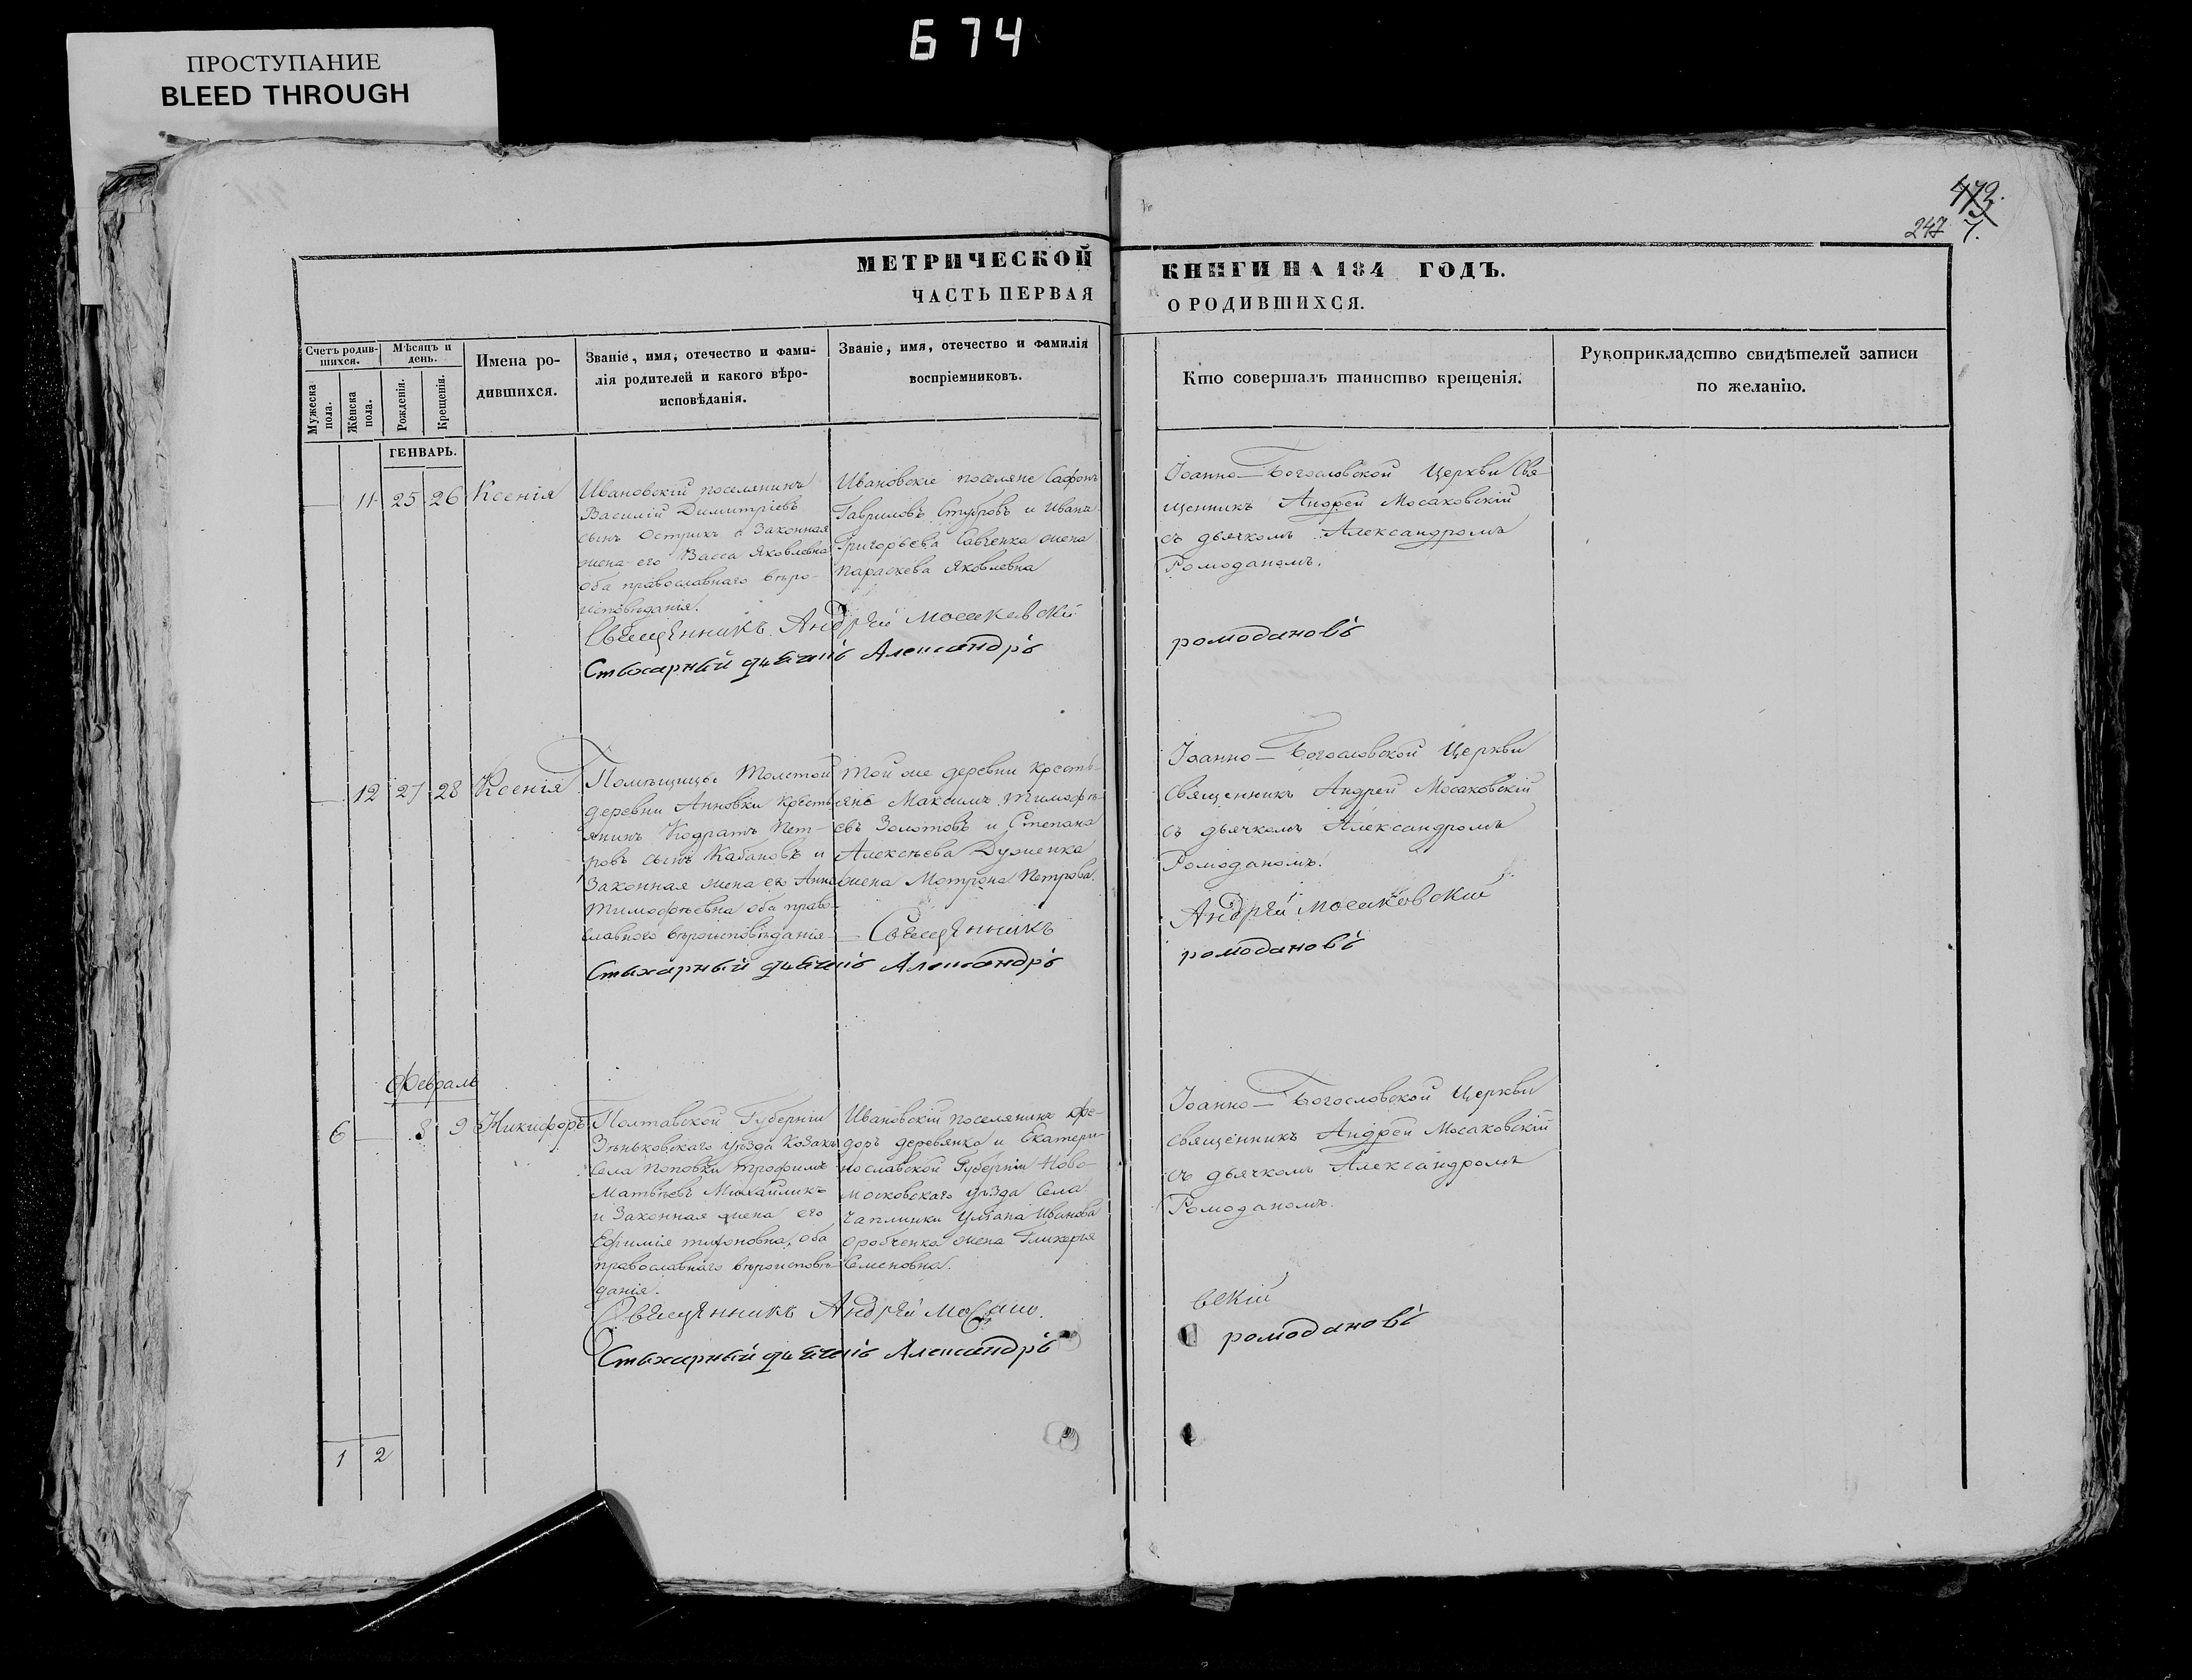 674
ПРОСТУПАНИЕ
BLEED THROUGH
247 7.
МЕТРИЧЕСКОЙ
ЧАСТЬ ПЕРВАЯ
КНИГИ НА 184 ГОДЪ.
О РОДИВШИХСЯ.
Счетъ родив-
шихся.
Мужеска
пола.
Женска
пола.
Мѣсяцъ и
день.
Рожденія.
Крещенія.
Имена ро-
дившихся.
Званіе, имя, отечество и фами-
лія родителей и какого вѣро-
исповѣданія.
Званіе, имя, отечество и фамилія
воспріемниковъ.
Кто совершалъ таинство крещенія.
Рукоприкладство свидѣтелей записи
по желанію.
ГЕНВАРЬ.
11 25 26 Ксенія
Ивановскій поселянинъ
Василій Димитріевъ
сынъ Острикъ и Законная
жена его Васса Яковлевна
оба православнаго вѣро-
исповѣданія.
Ивановскіе поселяне Сафонъ
Гавриловъ и Ивана
Григорьева Савченка жена
Параскева Яковлевна
Священникъ Андрей Мосаковскій
Стихарный дьячекъ Александръ
Іоанно-Богословской Церкви Свя-
щенникъ Андрей Мосаковскій
съ дьячкомъ Александромъ
Ромоданомъ.
ромодановъ
12 27 28 Ксенія
Помѣщицы Толстой
деревни Анновки Кресть-
янинъ Кодратъ Пет-
ровъ сынъ Кабановъ и
Законная жена его Анна
Тимофѣевна оба право-
славного вѣроисповѣданія
Той же деревни кресть-
яне Максимъ Тимофѣ-
евъ Золотовъ и Степана
Алексѣева Дуженка
жена Мотрона Петрова.
Священникъ
Стихарный дьячекъ Александръ
Іоанно-Богословской Церкви
Священникъ Андрей Мосаковскій
съ дьячкомъ Александромъ
Ромоданомъ.
Андрей Мосаковскій
ромодановъ
Февраль
6 8 9 Никифоръ
Полтавской Губерніи
Зѣньковскаго уѣзда Козакъ
Села Поповки Трофимъ
Матвѣевъ Михайликъ
и Законная жена его
Ефимія оба
православнаго вѣроисповѣ-
данія.
Ивановскій поселянинъ Фе-
доръ деревянка и Екатери-
нославской Губерніи Ново-
московскаго уѣзда Села
Чаплинки Уліана Иванова
жена Гликерія
Семеновна.
Священникъ Андрей Мосако.
Стихарный дьячекъ Александръ
Іоанно-Богословской Церкви
священникъ Андрей Мосаковскій
съ дьячкомъ Александромъ
Ромоданомъ.
вскій
ромодановъ
1 2